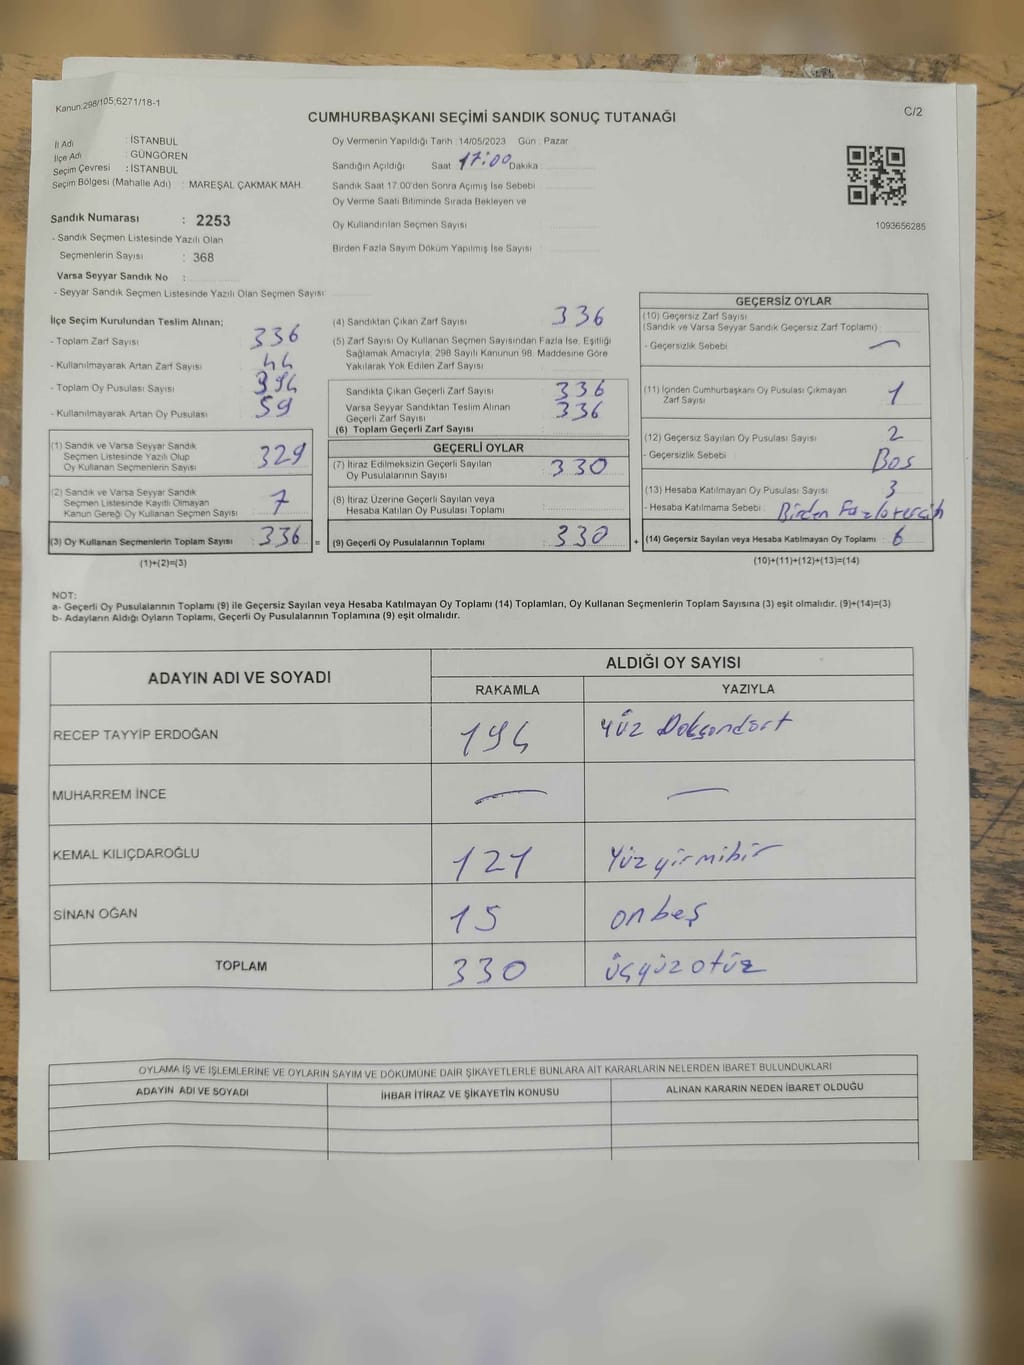 Kanun:298/105;6271/18-1
C/2
CUMHURBAŞKANI SEÇİMİ SANDIK SONUÇ TUTANAĞI
İl Adı : İSTANBUL
İlçe Adı : GÜNGÖREN
Seçim Çevresi : İSTANBUL
Seçim Bölgesi (Mahalle Adı) : MAREŞAL ÇAKMAK MAH.
Sandık Numarası : 2253
- Sandık Seçmen Listesinde Yazılı Olan
Seçmenlerin Sayısı : 368
Varsa Seyyar Sandık No :
- Seyyar Sandık Seçmen Listesinde Yazılı Olan Seçmen Sayısı:
Oy Vermenin Yapıldığı Tarih :14/05/2023 Gün : Pazar
Sandığın Açıldığı Saat 17:00 Dakika
Sandık Saat 17.00'den Sonra Açımış İse Sebebi
Oy Verme Saati Bitiminde Sırada Bekleyen ve
Oy Kullandırılan Seçmen Sayısı
Birden Fazla Sayım Döküm Yapılmış İse Sayısı
1093656285
İlçe Seçim Kurulundan Teslim Alınan;
- Toplam Zarf Sayısı 336
- Kullanılmayarak Artan Zarf Sayısı 44
- Toplam Oy Pusulası Sayısı 394
- Kullanılmayarak Artan Oy Pusulası 59
(1) Sandık ve Varsa Seyyar Sandık
Seçmen Listesinde Yazılı Olup
Oy Kullanan Seçmenlerin Sayısı 329
(2) Sandık ve Varsa Seyyar Sandık
Seçmen Listesinde Kayıtlı Olmayan
Kanun Gereği Oy Kullanan Seçmen Sayısı 7
(3) Oy Kullanan Seçmenlerin Toplam Sayısı 336 =
(1)+(2)=(3)
(4) Sandıktan Çıkan Zarf Sayısı 336
(5) Zarf Sayısı Oy Kullanan Seçmen Sayısından Fazla İse, Eşitliği
Sağlamak Amacıyla, 298 Sayılı Kanunun 98. Maddesine Göre
Yakılarak Yok Edilen Zarf Sayısı
Sandıkta Çıkan Geçerli Zarf Sayısı 336
Varsa Seyyar Sandıktan Teslim Alınan
Geçerli Zarf Sayısı 336
(6) Toplam Geçerli Zarf Sayısı
GEÇERLİ OYLAR
(7) İtiraz Edilmeksizin Geçerli Sayılan
Oy Pusulalarının Sayısı 330
(8) İtiraz Üzerine Geçerli Sayılan veya
Hesaba Katılan Oy Pusulaları Toplamı
(9) Geçerli Oy Pusulalarının Toplamı 330 +
GEÇERSİZ OYLAR
(10) Geçersiz Zarf Sayısı
(Sandık ve Varsa Seyyar Sandık Geçersiz Zarf Toplamı)
- Geçersizlik Sebebi
(11) İçinden Cumhurbaşkanı Oy Pusulası Çıkmayan
Zarf Sayısı 1
(12) Geçersiz Sayılan Oy Pusulası Sayısı 2
- Geçersizlik Sebebi Bos
(13) Hesaba Katılmayan Oy Pusulası Sayısı 3
- Hesaba Katılmama Sebebi Birden Fazla tercih
(14) Geçersiz Sayılan veya Hesaba Katılmayan Oy Toplamı 6
(10)+(11)+(12)+(13)=(14)
NOT:
a- Geçerli Oy Pusulalarının Toplamı (9) ile Geçersiz Sayılan veya Hesaba Katılmayan Oy Toplamı (14) Toplamları, Oy Kullanan Seçmenlerin Toplam Sayısına (3) eşit olmalıdır. (9)+(14)=(3)
b- Adayların Aldığı Oyların Toplamı, Geçerli Oy Pusulalarının Toplamına (9) eşit olmalıdır.
ADAYIN ADI VE SOYADI
ALDIĞI OY SAYISI
RAKAMLA YAZIYLA
RECEP TAYYİP ERDOĞAN 194 Yüz Doksandört
MUHARREM İNCE
KEMAL KILIÇDAROĞLU 121 Yüz yirmibir
SİNAN OĞAN 15 onbeş
TOPLAM 330 üçyüz otuz
OYLAMA İŞ VE İŞLEMLERİNE VE OYLARIN SAYIM VE DÖKÜMÜNE DAİR ŞİKAYETLERLE BUNLARA AİT KARARLARIN NELERDEN İBARET BULUNDUKLARI
ADAYIN ADI VE SOYADI İHBAR İTİRAZ VE ŞİKAYETİN KONUSU ALINAN KARARIN NEDEN İBARET OLDUĞU